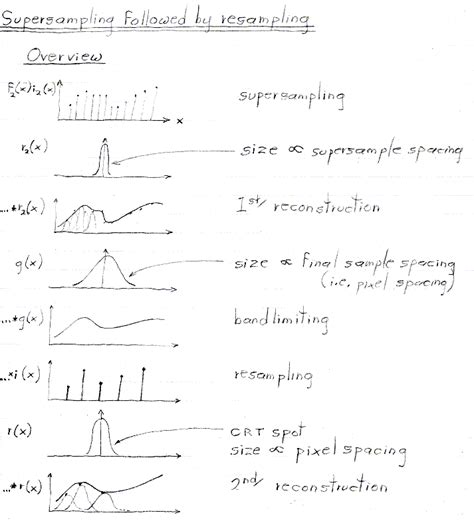 Supersampling followed by resampling
Overview
F₂(x)i₂(x)
x
supersampling
r₂(x)
size ∝ supersample spacing
...*r₂(x)
1st reconstruction
g(x)
size ∝ final sample spacing
(i.e. pixel spacing)
...*g(x)
bandlimiting
...×i(x)
resampling
r(x)
CRT spot
size ∝ pixel spacing
...*r(x)
2nd reconstruction